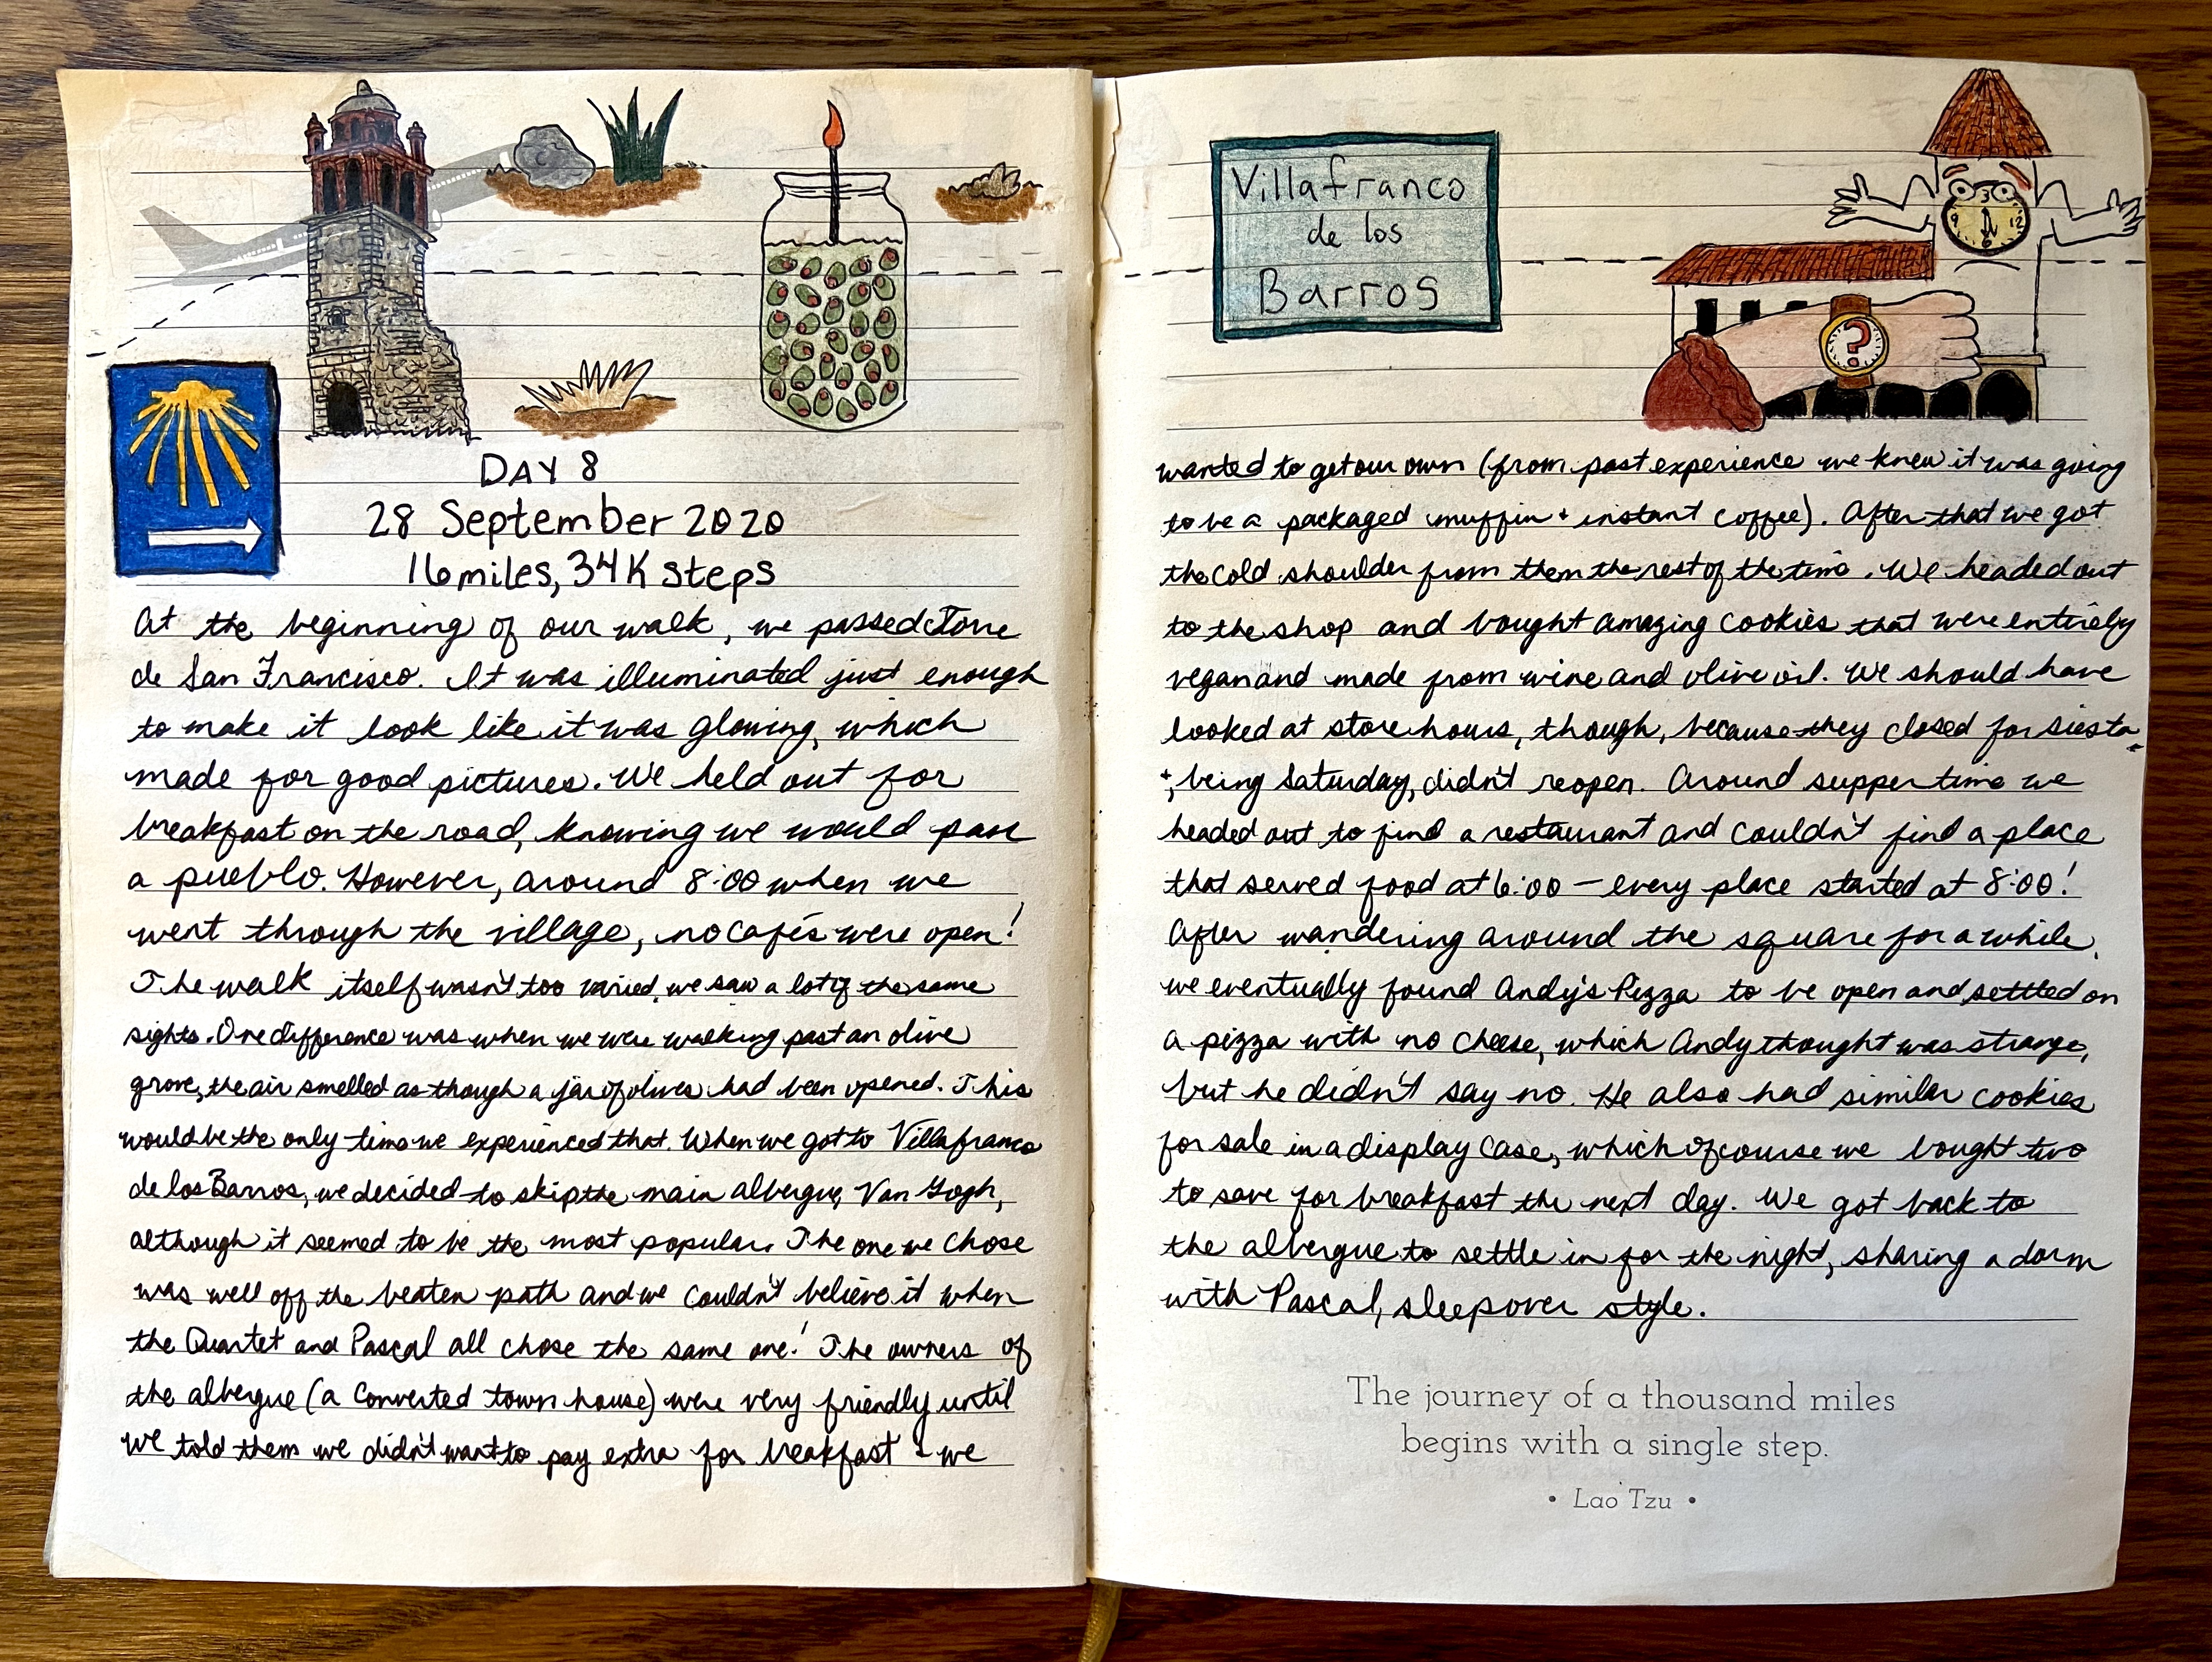 DAY 8
28 September 2020
16 miles, 34K steps
At the beginning of our walk, we passed Torre
de San Francisco. It was illuminated just enough
to make it look like it was glowing, which
made for good pictures. We held out for
breakfast on the road, knowing we would pass
a pueblo. However, around 8:00 when we
went through the village, no cafés were open!
The walk itself wasn't too varied, we saw a lot of the same
sights. One difference was when we were walking past an olive
grove, the air smelled as though a jar of olives had been opened. This
would be the only time we experienced that. When we got to Villafranco
de los Barros, we decided to skip the main albergue, Van Gogh,
although it seemed to be the most popular. The one we chose
was well off the beaten path and we couldn't believe it when
the Quartet and Pascal all chose the same one! The owners of
the albergue (a converted town house) were very friendly until
we told them we didn't want to pay extra for breakfast - we
Villafranco
de los
Barros
3
9 12
6
?
wanted to get our own (from past experience we knew it was going
to be a packaged muffin + instant coffee). After that we got
the cold shoulder from them the rest of the time. We headed out
to the shop and bought amazing cookies that were entirely
vegan and made from wine and olive oil. We should have
looked at store hours, though, because they closed for siesta
+, being Saturday, didn't reopen. Around supper time we
headed out to find a restaurant and couldn't find a place
that served food at 6:00 — every place started at 8:00!
After wandering around the square for a while,
we eventually found Andy's Pizza to be open and settled on
a pizza with no cheese, which Andy thought was strange,
but he didn't say no. He also had similar cookies
for sale in a display case, which of course we bought two
to save for breakfast the next day. We got back to
the albergue to settle in for the night, sharing a dorm
with Pascal, sleepover style.
The journey of a thousand miles
begins with a single step.
• Lao Tzu •